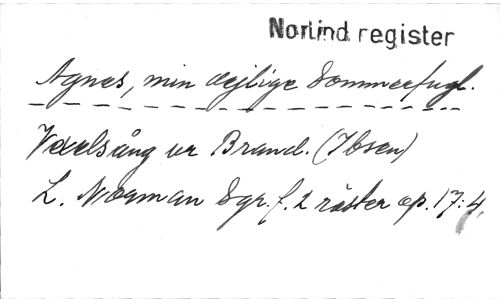 Norlind register
Agnes, min dejlige Sommerfugl.
Vexelsång ur Brand. (Ibsen)
L. Norman Sgr. f. 2 röster op. 17:4,